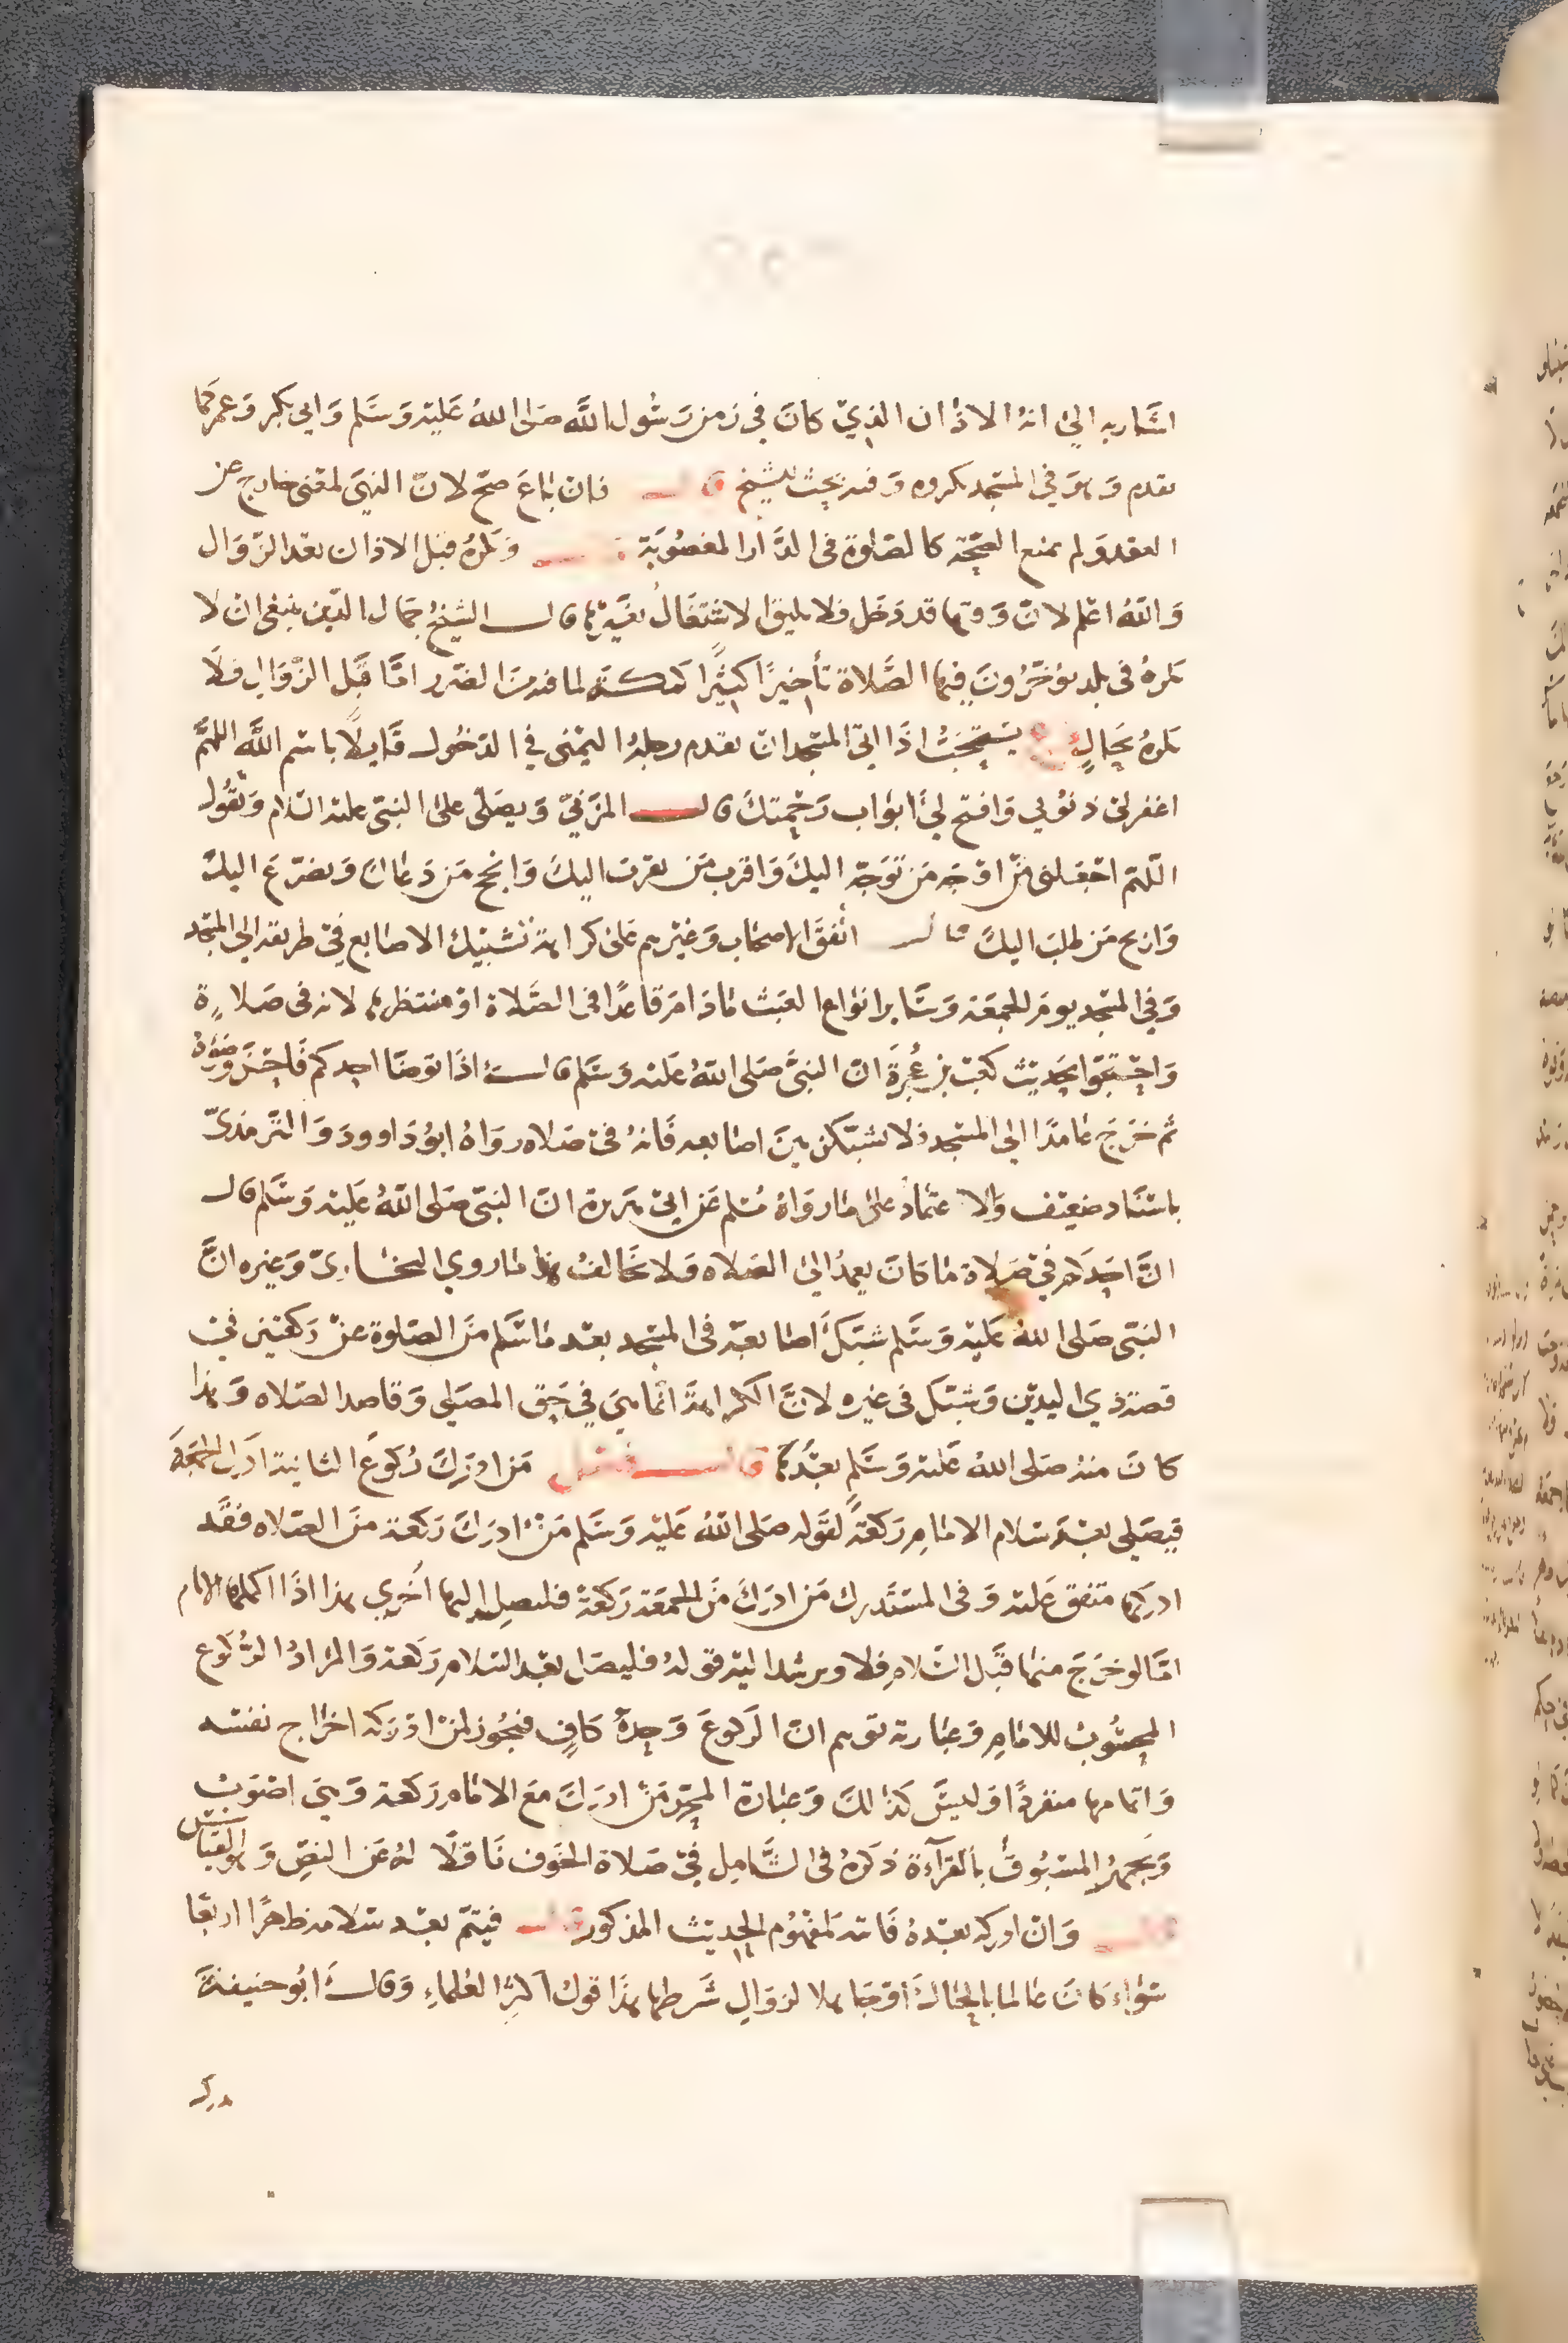 اشار به الي انه الاذان الذي كان في زمن رسول الله صلى الله عليه وسلم وابي بكر وعمر كما
تقدم وهو في المسجد مكروه وفيه بحث للشيخ قال فان باع صح لان النهي لمعنى خارج عن
العقد ولم يمنع الصحة كالصلوة في الدار المغصوبة ويكره قبل الاذان بعد الزوال
والله اعلم لان وقتها قد دخل فلا يليق الاشتغال بغيرها قال الشيخ جمال الدين ينبغي ان لا
يكره في بلد يؤخرون فيها الصلاة تأخيرا كثيرا كمكة لما فيه من الضرر اما قبل الزوال فلا
يكره بحال يستحب اذا اتى المسجد ان يقدم رجله اليمنى في الدخول قايلا باسم الله اللهم
اغفر لي ذنوبي وافتح لي ابواب رحمتك قال المزني ويصلى على النبي عليه السلام ويقول
اللهم اجعلني من اوجه من توجه اليك واقرب من تقرب اليك وانجح من دعاك وتضرع اليك
واربح من طلب اليك قال اتفق الاصحاب وغيرهم على كراهة تشبيك الاصابع في طريقه الى المسجد
وفي المسجد يوم الجمعة وساير انواع العبث ما دام قاعدا في الصلاة او منتظرها لانه في صلاة
واحتجوا بحديث كعب بن عجرة ان النبي صلى الله عليه وسلم قال اذا توضا احدكم فاحسن وضوءه
ثم خرج عامدا الى المسجد فلا يشبكن بين اصابعه فانه في صلاه رواه ابو داوود والترمذي
باسناد ضعيف والاعتماد على ما رواه مسلم عن ابي هريرة ان النبي صلى الله عليه وسلم قال
ان احدكم في صلاة ما كان يعمد الى الصلاه ولا يخالف هذا ما روي البخاري وغيره ان
النبي صلى الله عليه وسلم شبك اصابعه في المسجد بعد ما سلم من الصلوة عن ركعتين في
قصة ذي اليدين وشبك في غيره لان الكراهة انما هي في حق المصلي وقاصد الصلاه وهذا
كان منه صلى الله عليه وسلم بعدها قال فصل من ادرك ركوع الثانية ادرك الجمعة
فيصلي بعد سلام الامام ركعة لقوله صلى الله عليه وسلم من ادرك ركعة من الصلاه فقد
ادركها متفق عليه وفي المستدرك من ادرك من الجمعة ركعة فليصل اليها أخرى هذا اذا اكملها الامام
اما لو خرج منها قبل السلام فلا ويرشد اليه قوله فليصل بعد السلام ركعة والمراد الركوع
المحسوب للامام وعبارته توهم ان الركوع وحده كاف فيجوز لمن ادركه اخراج نفسه
واتمامها منفردا وليس كذلك وعبارة المحرر من ادرك مع الامام ركعة وهي اصوب
ويجهر المسبوق بالقرآءة ذكره في الشامل في صلاة الخوف ناقلا له عن النص وهو القياس
قال وان ادركه بعده فاتته لمفهوم الحديث المذكور قال فيتم بعد سلامه ظهرا اربعا
سواء كان عالما بالحال او جاهلا لزوال شرطها هذا قول اكثر العلماء وقال ابو حنيفة